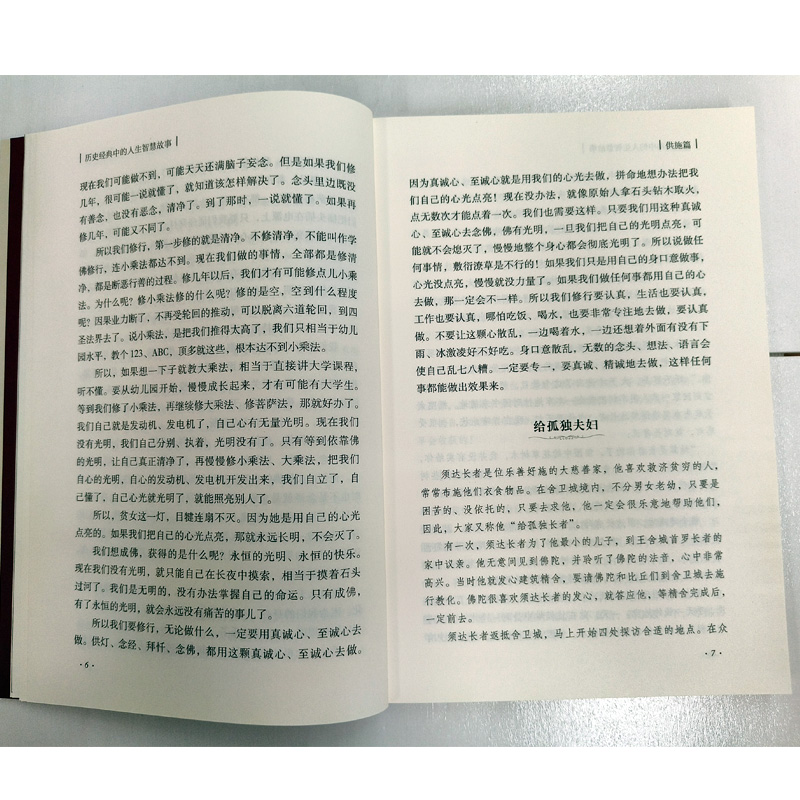 历史经典中的人生智慧故事
现在我们可能做不到，可能天天还满脑子妄念。但是如果我们修
几年，很可能一说就懂了，就知道该怎样解决了。念头里边既没
有善念，也没有恶念，清净了。到了那时，一说就懂了。如果再
修几年，可能又不同了。
所以我们修行，第一步修的就是清净。不修清净，不能叫作学
佛修行，连小乘法都达不到。现在我们做的事情，全部都是修清
净，都是断恶行善的过程。修几年以后，我们才有可能修点儿小乘
法。为什么呢？修小乘法修的什么呢？修的是空，空到什么程度
呢？因果业力断了，不再受轮回的推动，可以脱离六道轮回，到四
圣法界去了。说小乘法，是把我们推得太高了，我们只相当于幼儿
园水平，教个123、ABC，顶多就这些，根本达不到小乘法。
所以，如果想一下子就教大乘法，相当于直接讲大学课程，
听不懂。要从幼儿园开始，慢慢成长起来，才有可能有大学生。
等到我们修了小乘法，再继续修大乘法、修菩萨法，那就好办了。
我们自己就是发动机、发电机了，自己心有无量光明。现在我们
没有光明，我们自己分别、执着，光明没有了。只有等到依靠佛
的光明，让自己真正清净了，再慢慢修小乘法、大乘法，把我们
自心的光明，自心的发动机、发电机开发出来，我们自立了，自
己懂了，自己心光就光明了，就能照亮别人了。
所以，贫女这一灯，目犍连扇不灭。因为她是用自己的心光
点亮的。如果我们把自己的心光点亮，那就永远长明，不会灭了。
我们想成佛，获得的是什么呢？永恒的光明、永恒的快乐。
现在我们没有光明，就只能自己在长夜中摸索，相当于摸着石头
过河了。我们是无明的，没有办法掌握自己的命运。只有成佛，
有了永恒的光明，就会永远没有痛苦的事儿了。
所以我们要修行，无论做什么，一定要用真诚心、至诚心去
做。供灯、念经、拜忏、念佛，都用这颗真诚心、至诚心去做。
·6·
供施篇
因为真诚心、至诚心就是用我们的心光去做，拼命地想办法把我
们自己的心光点亮！现在没办法，就像原始人拿石头钻木取火，
点无数次才能点着一次。我们也需要这样。只要我们用这种真诚
心、至诚心去念佛，佛有光明，一旦我们把自己的光明点亮，可
能就不会熄灭了，慢慢地整个身心都会彻底光明了。所以说做任
何事情，敷衍潦草是不行的！如果我们只是用自己的身口意做事，
心光没点亮，慢慢就没力量了。如果我们做任何事都用自己的心
去做，那一定会不一样。所以我们修行要认真，生活也要认真，
工作也要认真，哪怕吃饭、喝水，也要非常专注地去做，要认真
做。不要让这颗心散乱，一边喝着水，一边还想着外面有没有下
雨、冰激凌好不好吃。身口意散乱，无数的念头、想法、语言会
使自己乱七八糟。一定要专一，要真诚、精诚地去做，这样任何
事都能做出效果来。
给孤独夫妇
须达长者是位乐善好施的大慈善家，他喜欢救济贫穷的人，
常常布施他们衣食物品。在舍卫城境内，不分男女老幼，只要是
困苦的、没依托的，只要去求他，他一定会很乐意地帮助他们，
因此，大家又称他“给孤独长者”。
有一次，须达长者为了他最小的儿子，到王舍城首罗长者的
家中议亲。他无意间见到佛陀，并聆听了佛陀的法音，心中非常
高兴。当时他就发心建筑精舍，要请佛陀和比丘们到舍卫城去施
行教化。佛陀很喜欢须达长者的发心，就答应他，等精舍完成后，
一定前去。
须达长者返抵舍卫城，马上开始四处探访合适的地点。在众
·7·